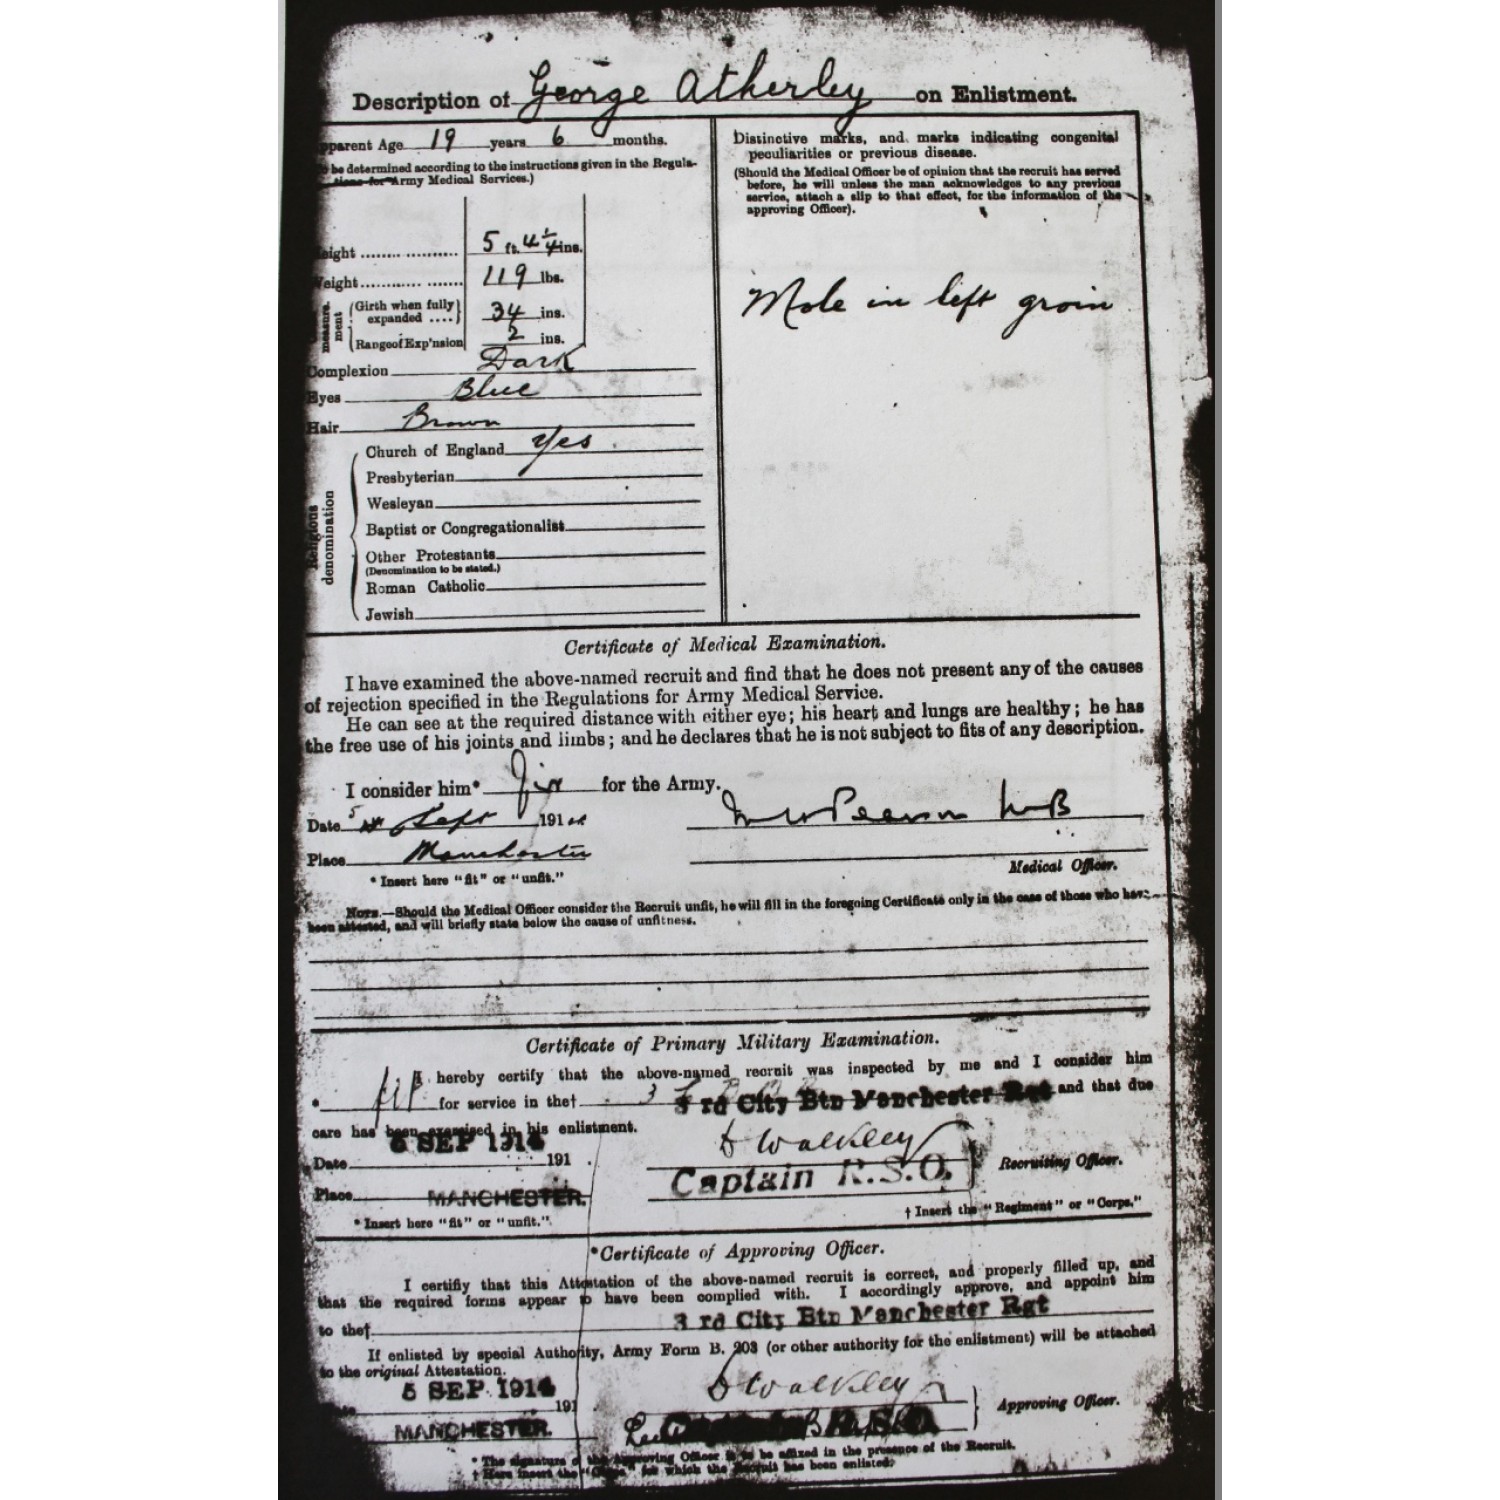 Description of George Atherley on Enlistment.
pparent Age 19 years 6 months.
be determined according to the instructions given in the Regula-
tions for Army Medical Services.)
eight 5 ft. 4 1/4 ins.
eight 119 lbs.
measure-
ment
Girth when fully
expanded .... 34 ins.
Range of Exp'nsion 2 ins.
Complexion Dark
Eyes Blue
Hair Brown
Religious
denomination
Church of England Yes
Presbyterian
Wesleyan
Baptist or Congregationalist
Other Protestants
(Denomination to be stated.)
Roman Catholic
Jewish
Distinctive marks, and marks indicating congenital
peculiarities or previous disease.
(Should the Medical Officer be of opinion that the recruit has served
before, he will unless the man acknowledges to any previous
service, attach a slip to that effect, for the information of the
approving Officer).
Mole in left groin
Certificate of Medical Examination.
I have examined the above-named recruit and find that he does not present any of the causes
of rejection specified in the Regulations for Army Medical Service.
He can see at the required distance with either eye; his heart and lungs are healthy; he has
the free use of his joints and limbs; and he declares that he is not subject to fits of any description.
I consider him* fit for the Army.
Date 5 Sept 191
Place Manchester
MB
Medical Officer.
* Insert here "fit" or "unfit."
NOTE.—Should the Medical Officer consider the Recruit unfit, he will fill in the foregoing Certificate only in the case of those who have
been attested, and will briefly state below the cause of unfitness.
Certificate of Primary Military Examination.
I hereby certify that the above-named recruit was inspected by me and I consider him
* fit for service in the† 3 rd City Btn Manchester Rgt and that due
care has been exercised in his enlistment.
Date 5 SEP 1914 191
Place MANCHESTER.
Walkley
Captain R.S.O.
Recruiting Officer.
* Insert here "fit" or "unfit."
† Insert the "Regiment" or "Corps."
*Certificate of Approving Officer.
I certify that this Attestation of the above-named recruit is correct, and properly filled up, and
that the required forms appear to have been complied with. I accordingly approve, and appoint him
to the† 3 rd City Btn Manchester Rgt
If enlisted by special Authority, Army Form B. 203 (or other authority for the enlistment) will be attached
to the original Attestation.
5 SEP 1914
191
MANCHESTER.
Walkley
Approving Officer.
* The signature of the Approving Officer is to be affixed in the presence of the Recruit.
† Here insert the "Corps" for which the Recruit has been enlisted.